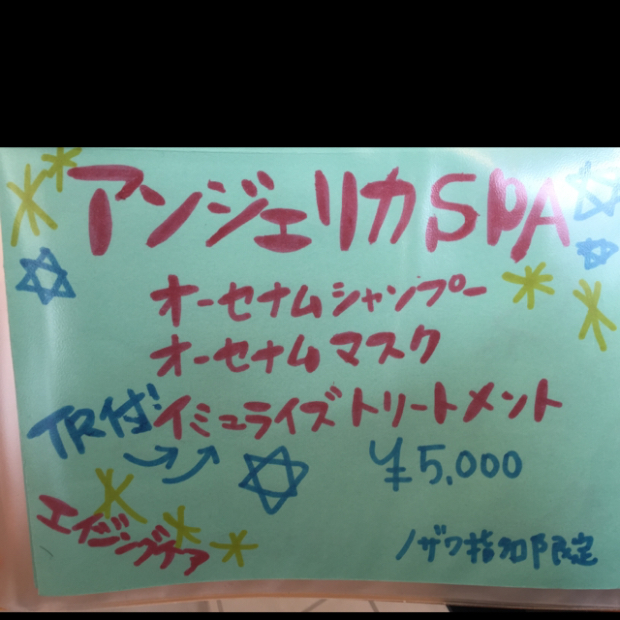 アンジェリカSPA
オーセナムシャンプー
オーセナムマスク
TR付! イミュライズトリートメント
¥5,000
エイジングケア
ノザワ指名限定